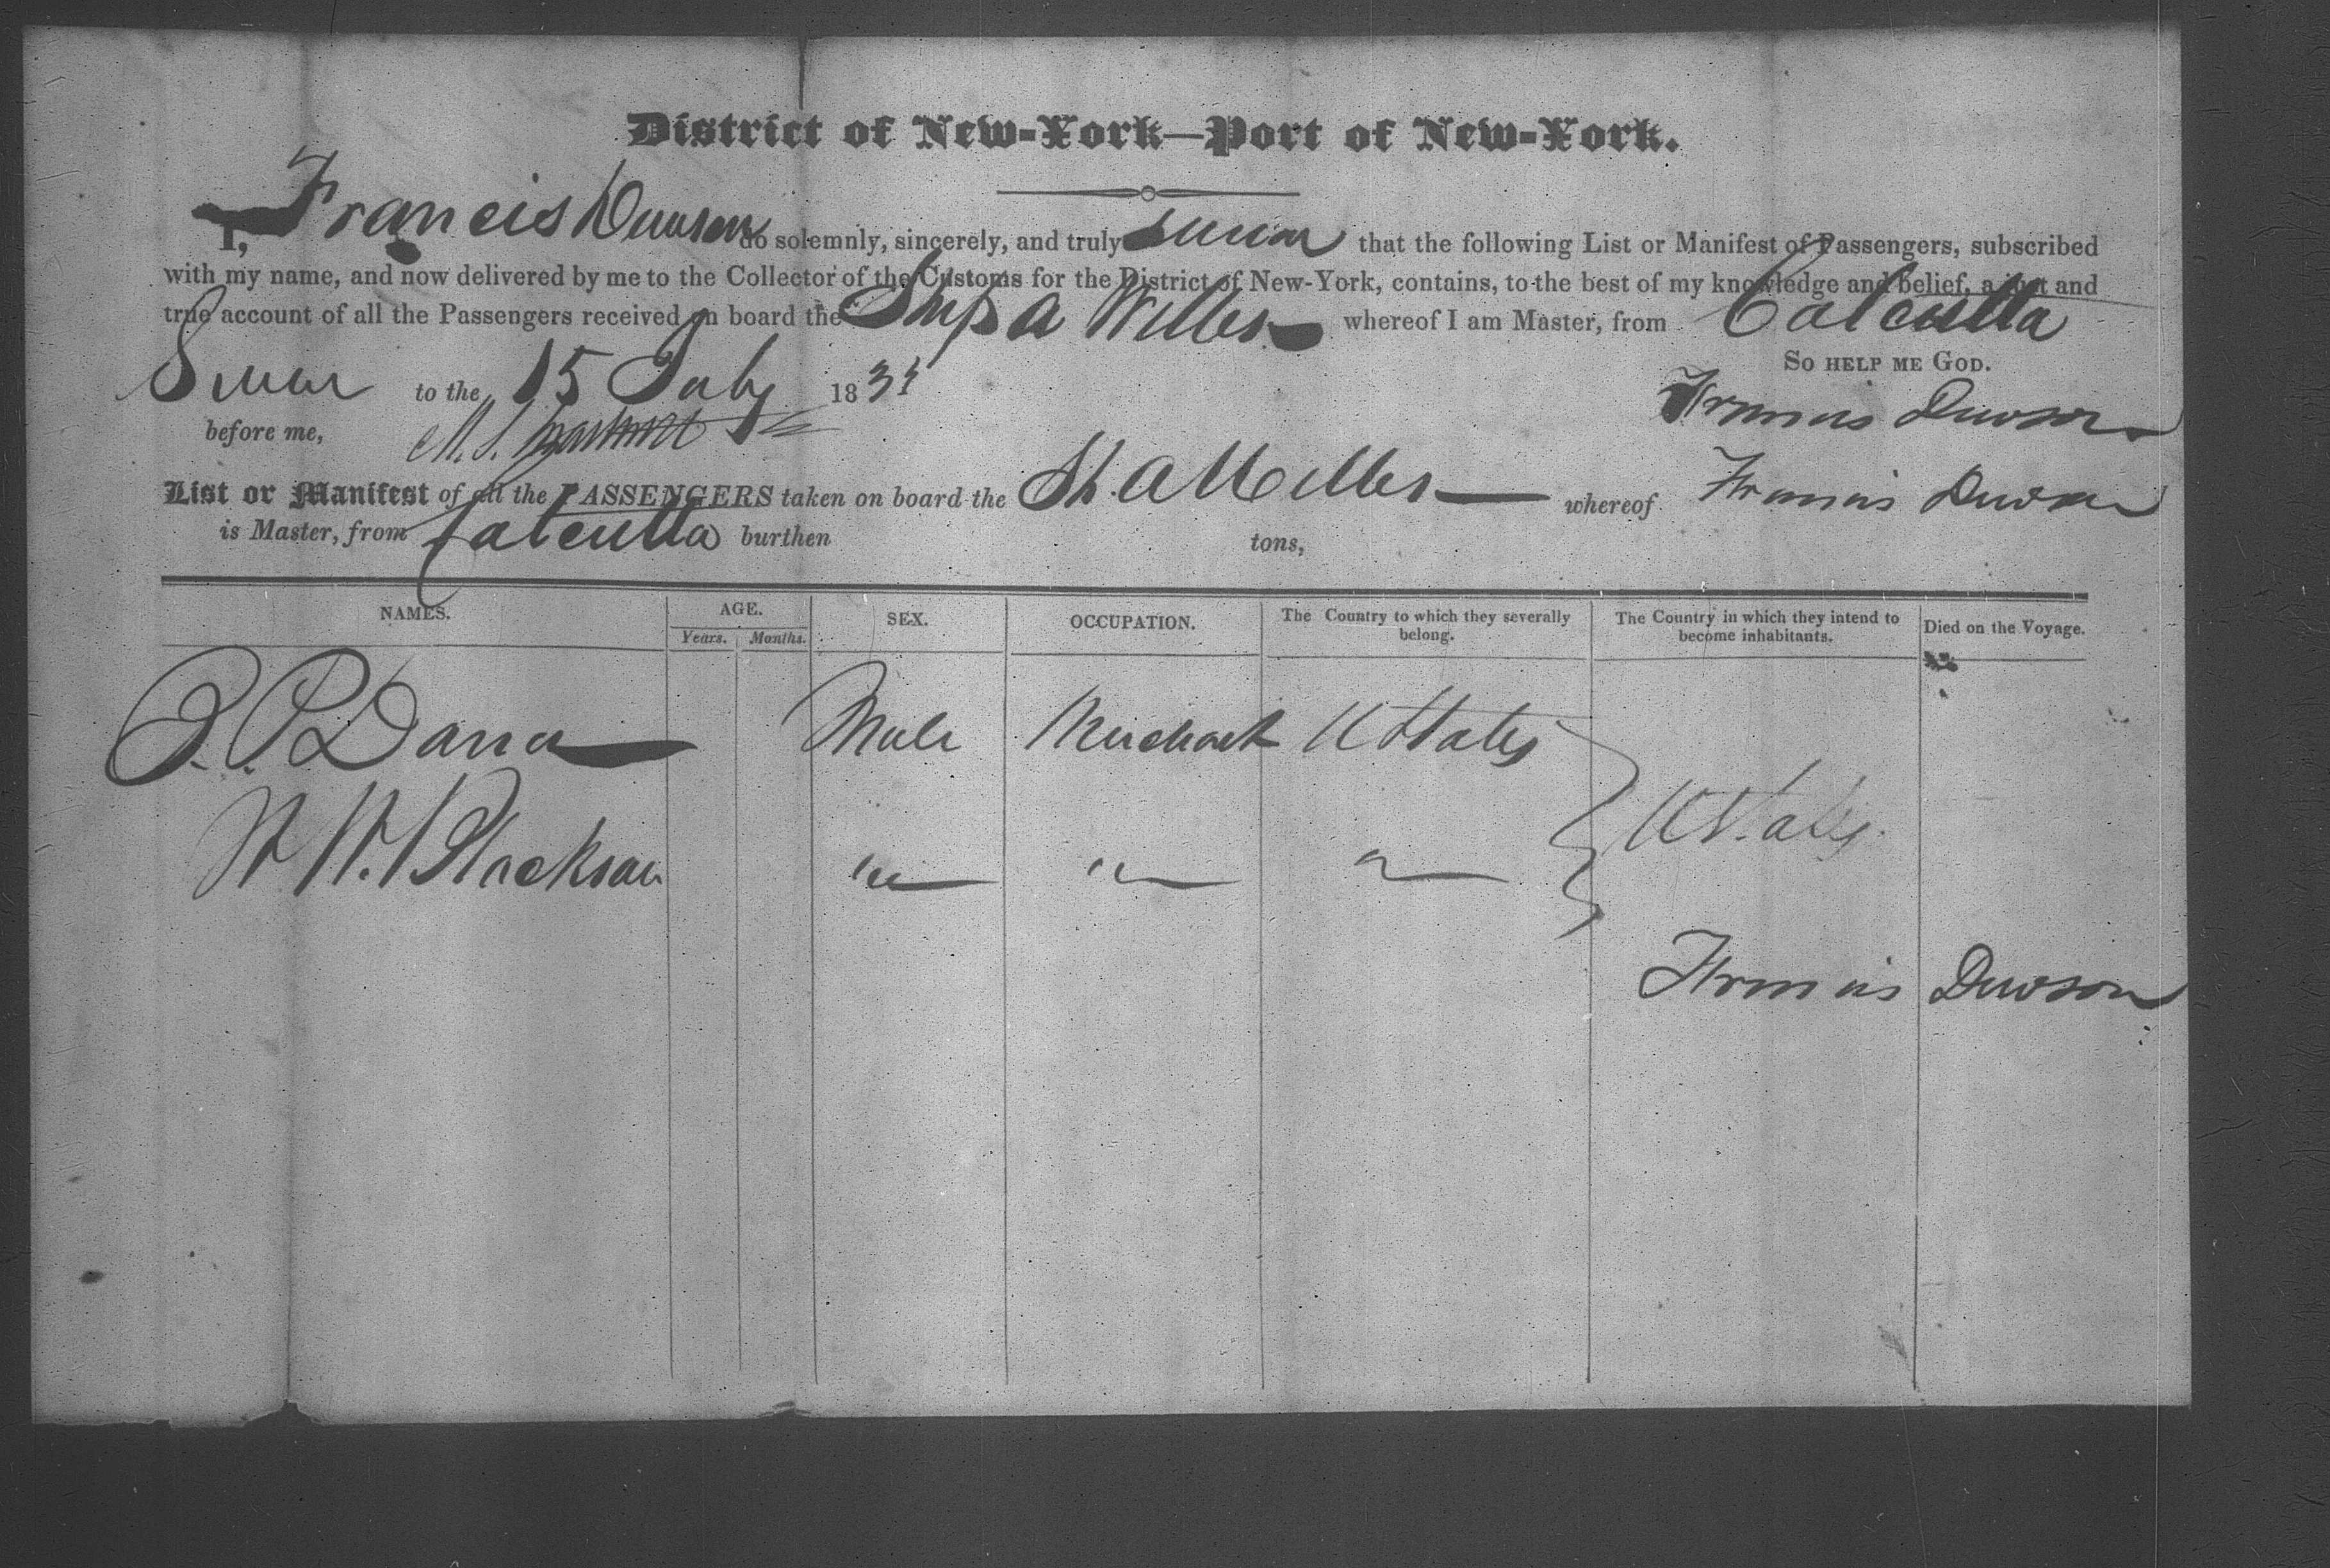 District of New-York—Port of New-York.
I, Francis Dawson do solemnly, sincerely, and truly swear that the following List or Manifest of Passengers, subscribed
with my name, and now delivered by me to the Collector of the Customs for the District of New-York, contains, to the best of my knowledge and belief, a just and
true account of all the Passengers received on board the Ship whereof I am Master, from Calcutta
So help me God.
Swear to the 15 July 183
Francis Dawson
before me,
List or Manifest of all the PASSENGERS taken on board the Sh. whereof Francis Dawson
is Master, from Calcutta burthen tons,
NAMES. AGE. Years. Months. SEX. OCCUPATION. The Country to which they severally belong. The Country in which they intend to become inhabitants. Died on the Voyage.
Dana Male Merchant U States
U States
" " "
Francis Dawson